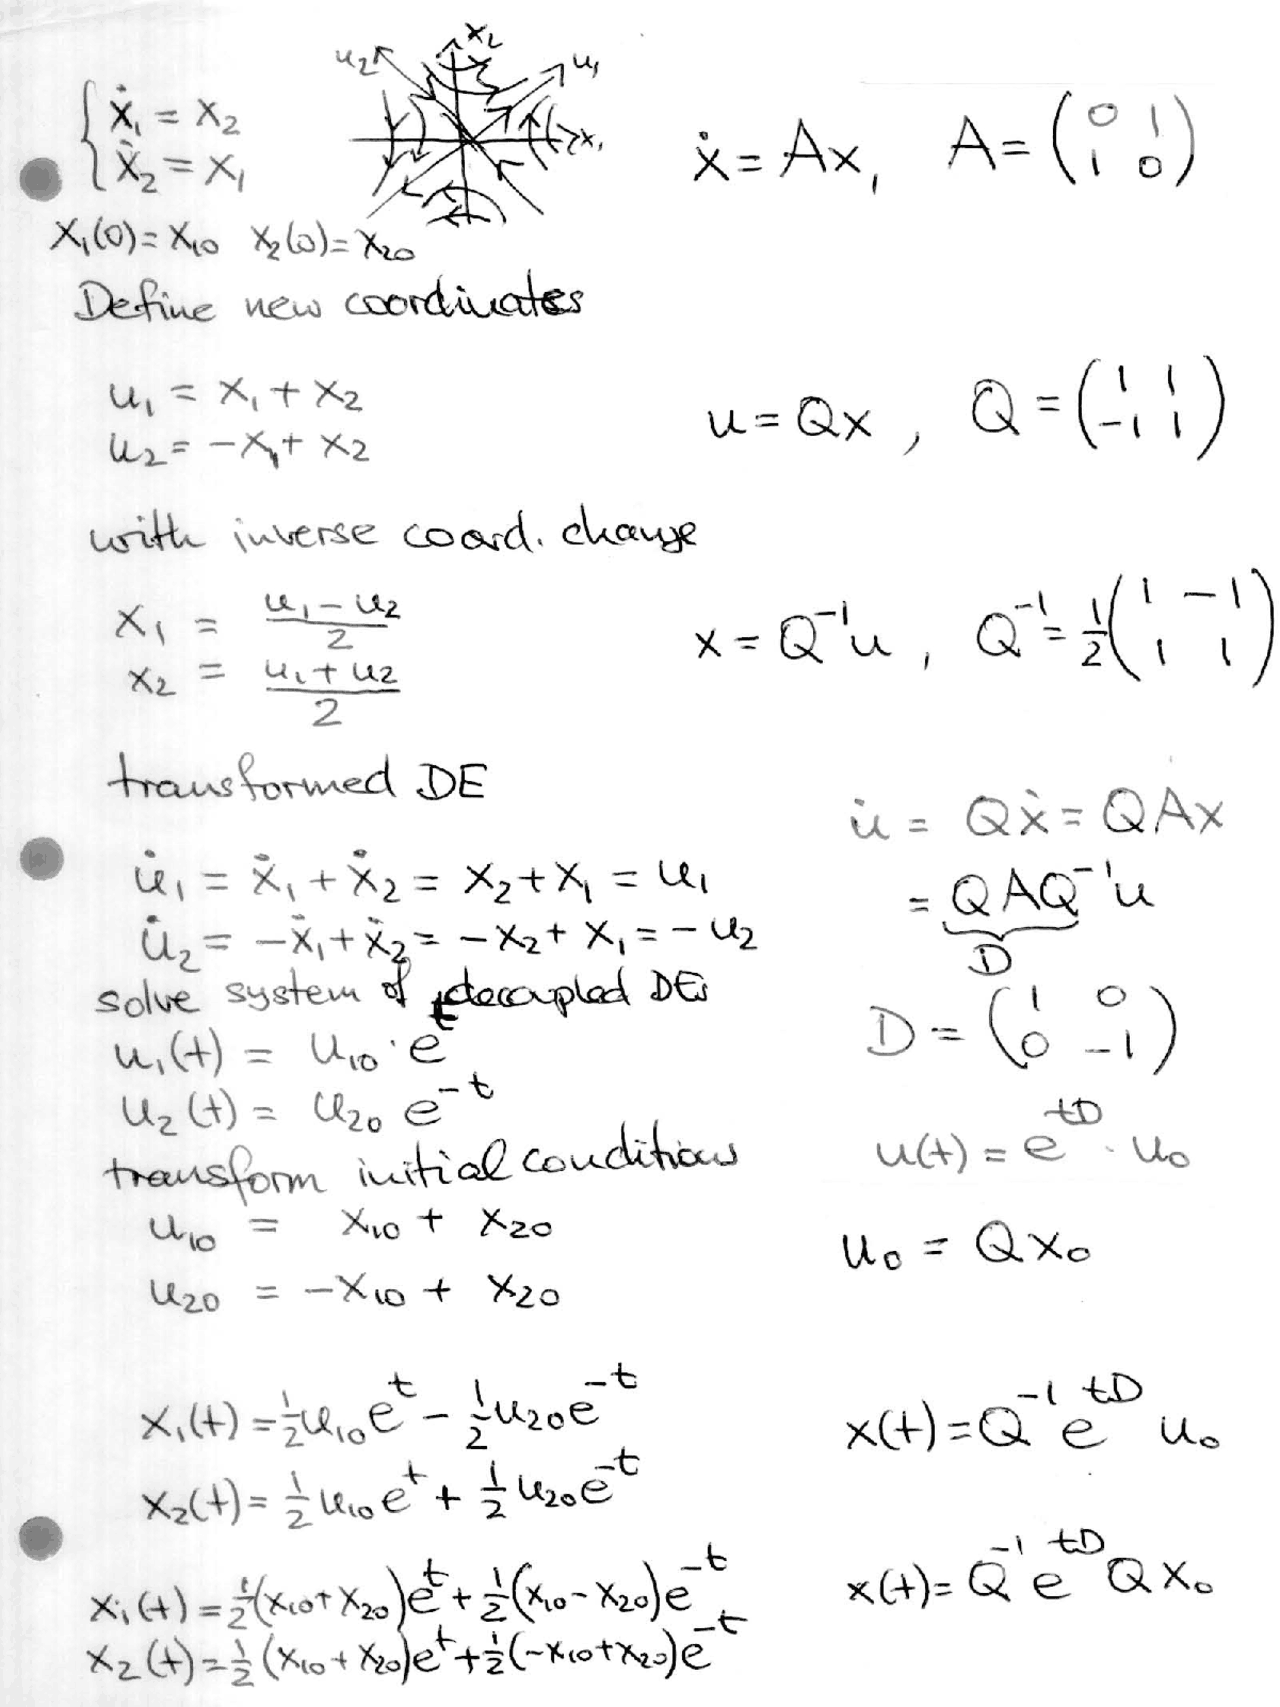 u₂ x₂ u₁ x₁
{ ẋ₁ = x₂
ẋ₂ = x₁
ẋ = Ax, A = ( 0 1
1 0 )
x₁(0) = x₁₀ x₂(0) = x₂₀
Define new coordinates
u₁ = x₁ + x₂
u₂ = -x₁ + x₂
u = Qx , Q = ( 1 1
-1 1 )
with inverse coord. change
x₁ = (u₁ - u₂)/2
x₂ = (u₁ + u₂)/2
x = Q⁻¹u , Q⁻¹ = 1/2 ( 1 -1
1 1 )
transformed DE
u̇₁ = ẋ₁ + ẋ₂ = x₂ + x₁ = u₁
u̇₂ = -ẋ₁ + ẋ₂ = -x₂ + x₁ = -u₂
u̇ = Qẋ = QAx
= QAQ⁻¹u
D
solve system of decoupled DEs
D = ( 1 0
0 -1 )
u₁(t) = u₁₀ · e^t
u₂(t) = u₂₀ e^-t
u(t) = e^tD · u₀
transform initial conditions
u₁₀ = x₁₀ + x₂₀
u₂₀ = -x₁₀ + x₂₀
u₀ = Qx₀
x₁(t) = 1/2 u₁₀ e^t - 1/2 u₂₀ e^-t
x₂(t) = 1/2 u₁₀ e^t + 1/2 u₂₀ e^-t
x(t) = Q⁻¹ e^tD u₀
x₁(t) = 1/2 (x₁₀ + x₂₀) e^t + 1/2 (x₁₀ - x₂₀) e^-t
x₂(t) = 1/2 (x₁₀ + x₂₀) e^t + 1/2 (-x₁₀ + x₂₀) e^-t
x(t) = Q⁻¹ e^tD Q x₀